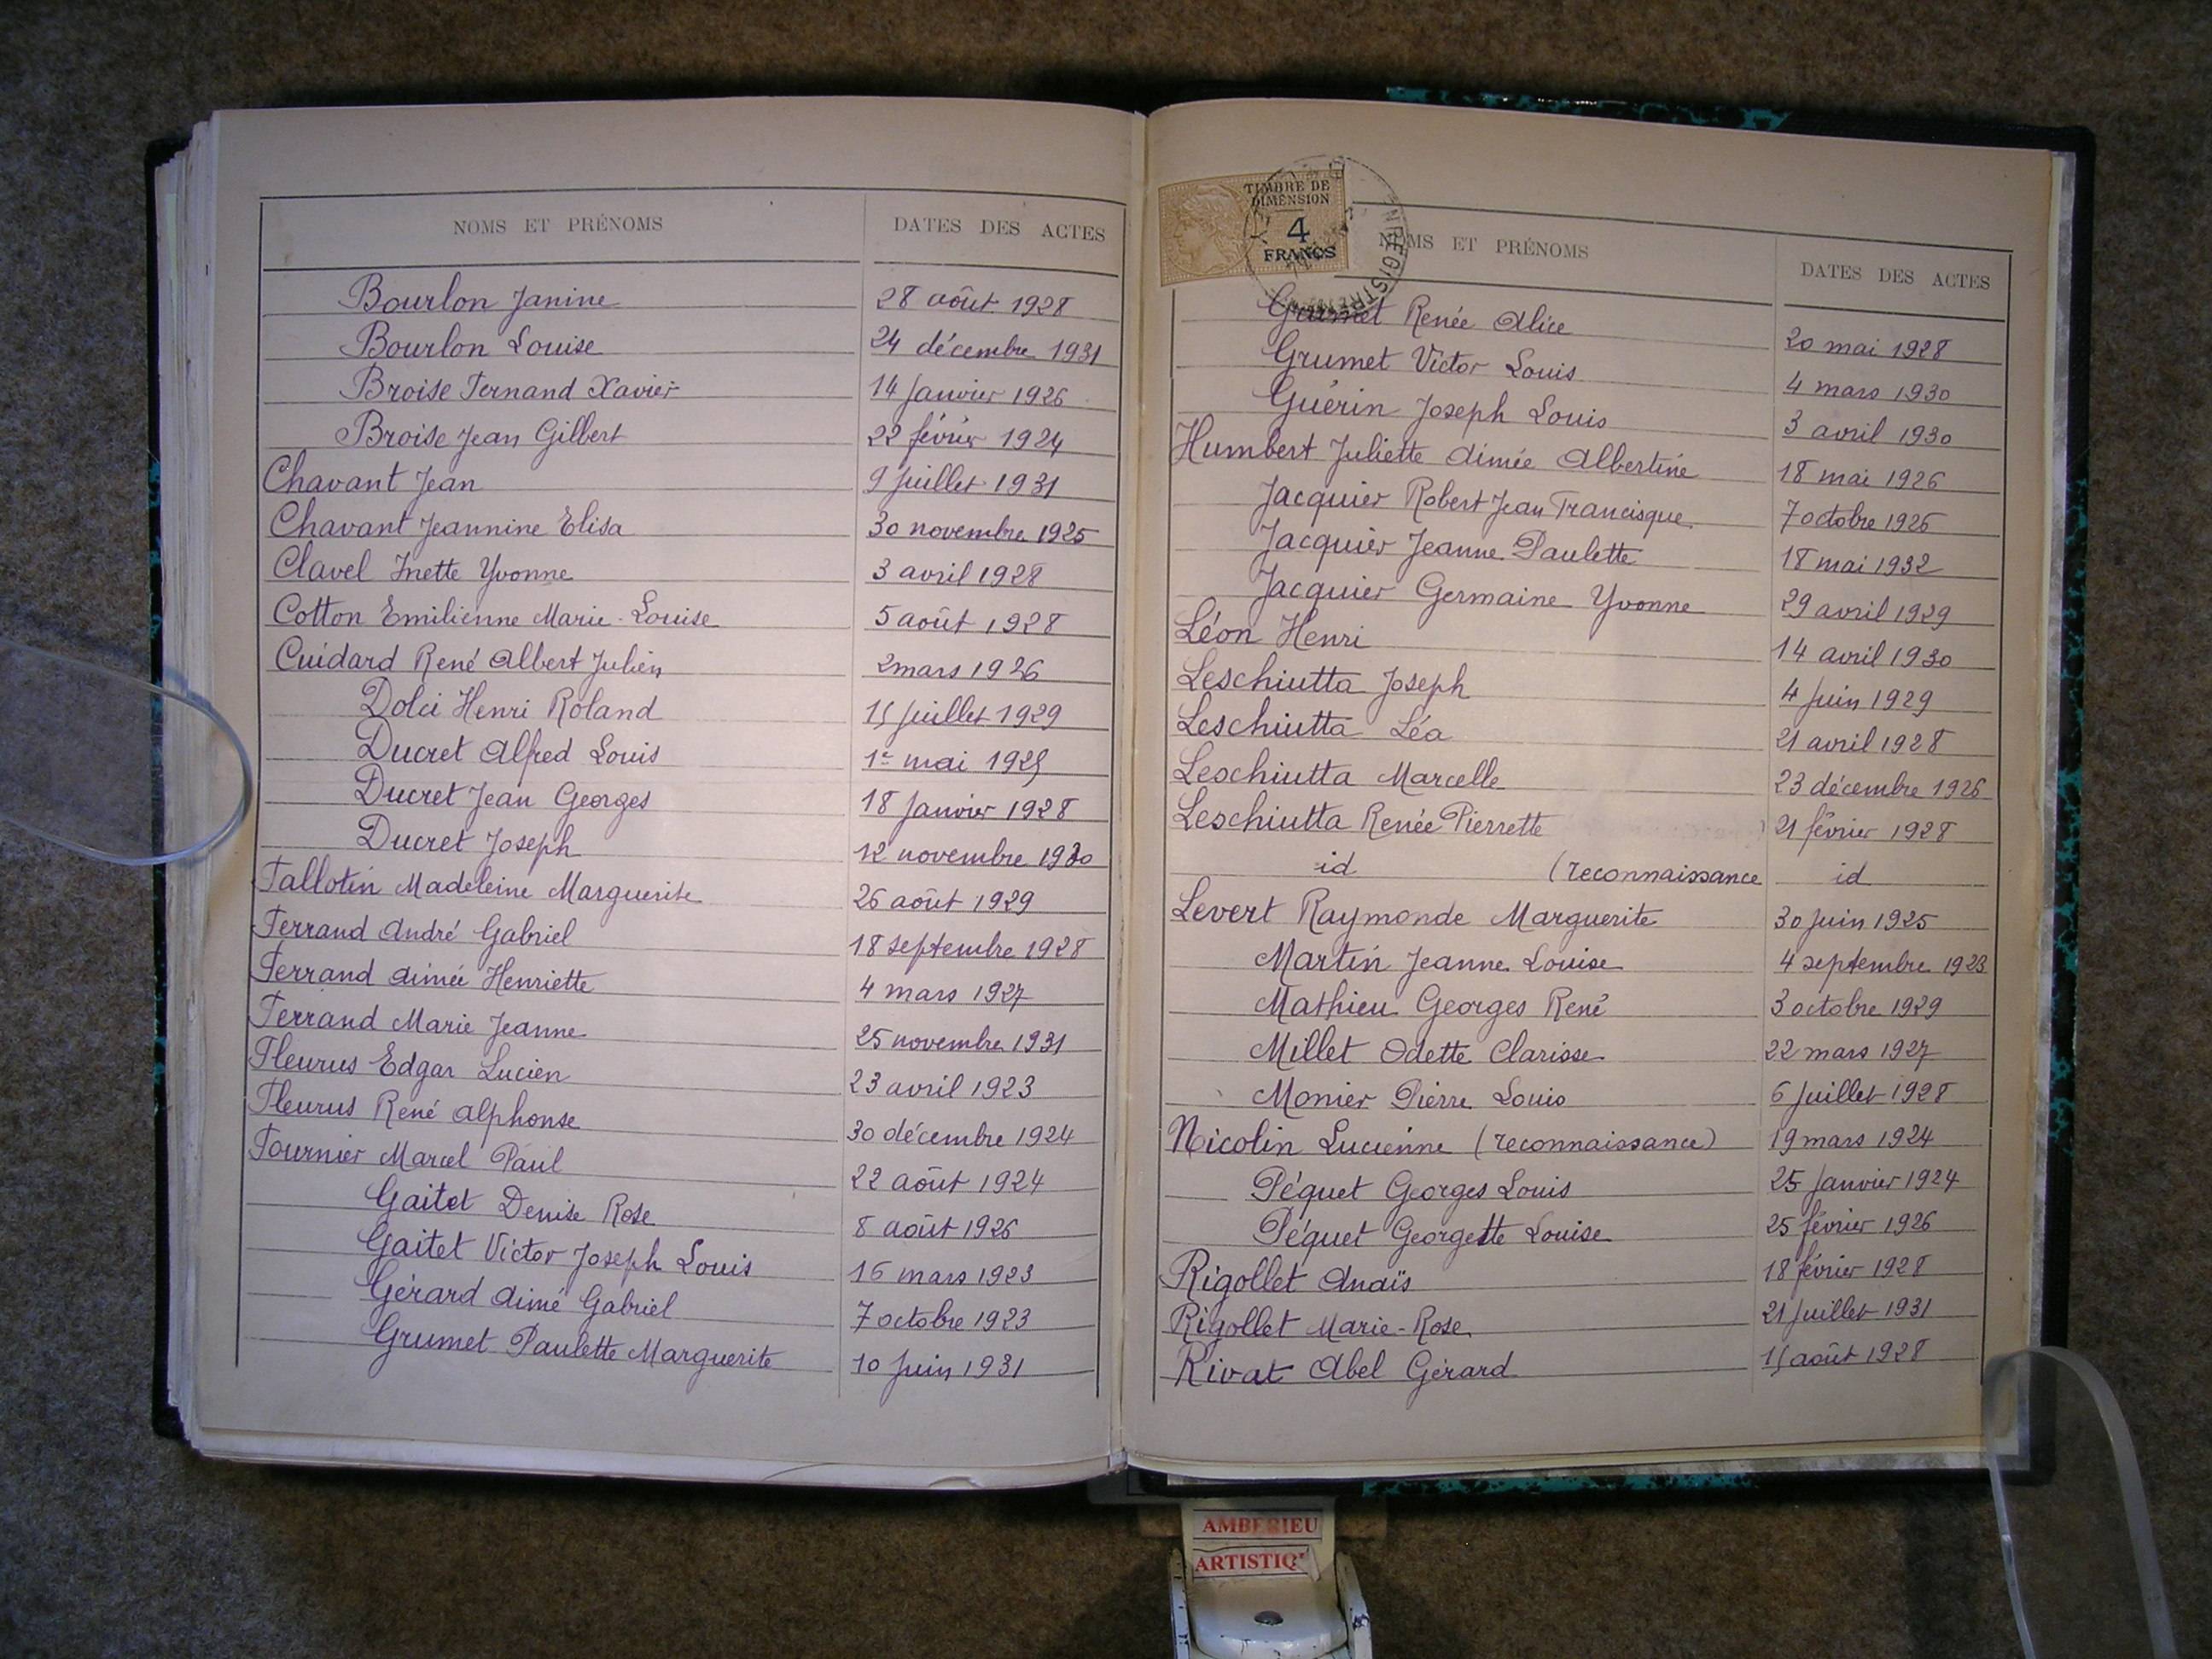 NOMS ET PRÉNOMS DATES DES ACTES
Bourlon Janine 28 août 1928
Bourlon Louise 24 décembre 1931
Broise Fernand Xavier 14 Janvier 1926
Broise Jean Gilbert 22 février 1924
Chavant Jean 9 Juillet 1931
Chavant Jeannine Elisa 30 novembre 1925
Clavel Inette Yvonne 3 avril 1928
Cotton Emilienne Marie-Louise 5 août 1928
Cuidard René Albert Julien 2 mars 1926
Dolci Henri Roland 15 Juillet 1929
Ducret Alfred Louis 1er mai 1925
Ducret Jean Georges 18 Janvier 1928
Ducret Joseph 12 novembre 1930
Fallotin Madeleine Marguerite 26 août 1929
Ferrand André Gabriel 18 septembre 1928
Ferrand Aimée Henriette 4 mars 1927
Ferrand Marie Jeanne 25 novembre 1931
Fleurus Edgar Lucien 23 avril 1923
Fleurus René Alphonse 30 décembre 1924
Fournier Marcel Paul 22 août 1924
Gaitet Denise Rose 8 août 1926
Gaitet Victor Joseph Louis 16 mars 1923
Gérard Aimé Gabriel 7 octobre 1923
Grumet Paulette Marguerite 10 Juin 1931
TIMBRE DE
DIMENSION
4
FRANCS
ENREGISTREMENT
NOMS ET PRÉNOMS DATES DES ACTES
Grumet Renée Alice 20 mai 1928
Grumet Victor Louis 4 mars 1930
Guérin Joseph Louis 3 avril 1930
Humbert Juliette Aimée Albertine 18 mai 1926
Jacquier Robert Jean Francisque 7 octobre 1926
Jacquier Jeanne Paulette 18 mai 1932
Jacquier Germaine Yvonne 29 avril 1929
Léon Henri 14 avril 1930
Leschiutta Joseph 4 Juin 1929
Leschiutta Léa 21 avril 1928
Leschiutta Marcelle 23 décembre 1926
Leschiutta Renée Pierrette 21 février 1928
id (reconnaissance id
Levert Raymonde Marguerite 30 Juin 1925
Martin Jeanne Louise 4 septembre 1923
Mathieu Georges René 3 octobre 1929
Millet Odette Clarisse 22 mars 1927
Monier Pierre Louis 6 Juillet 1928
Nicolin Lucienne (reconnaissance) 19 mars 1924
Péquet Georges Louis 25 Janvier 1924
Péquet Georgette Louise 25 février 1926
Rigollet Anaïs 18 février 1928
Rigollet Marie-Rose 21 Juillet 1931
Rivat Abel Gérard 15 août 1928
AMBERIEU
ARTISTIQ